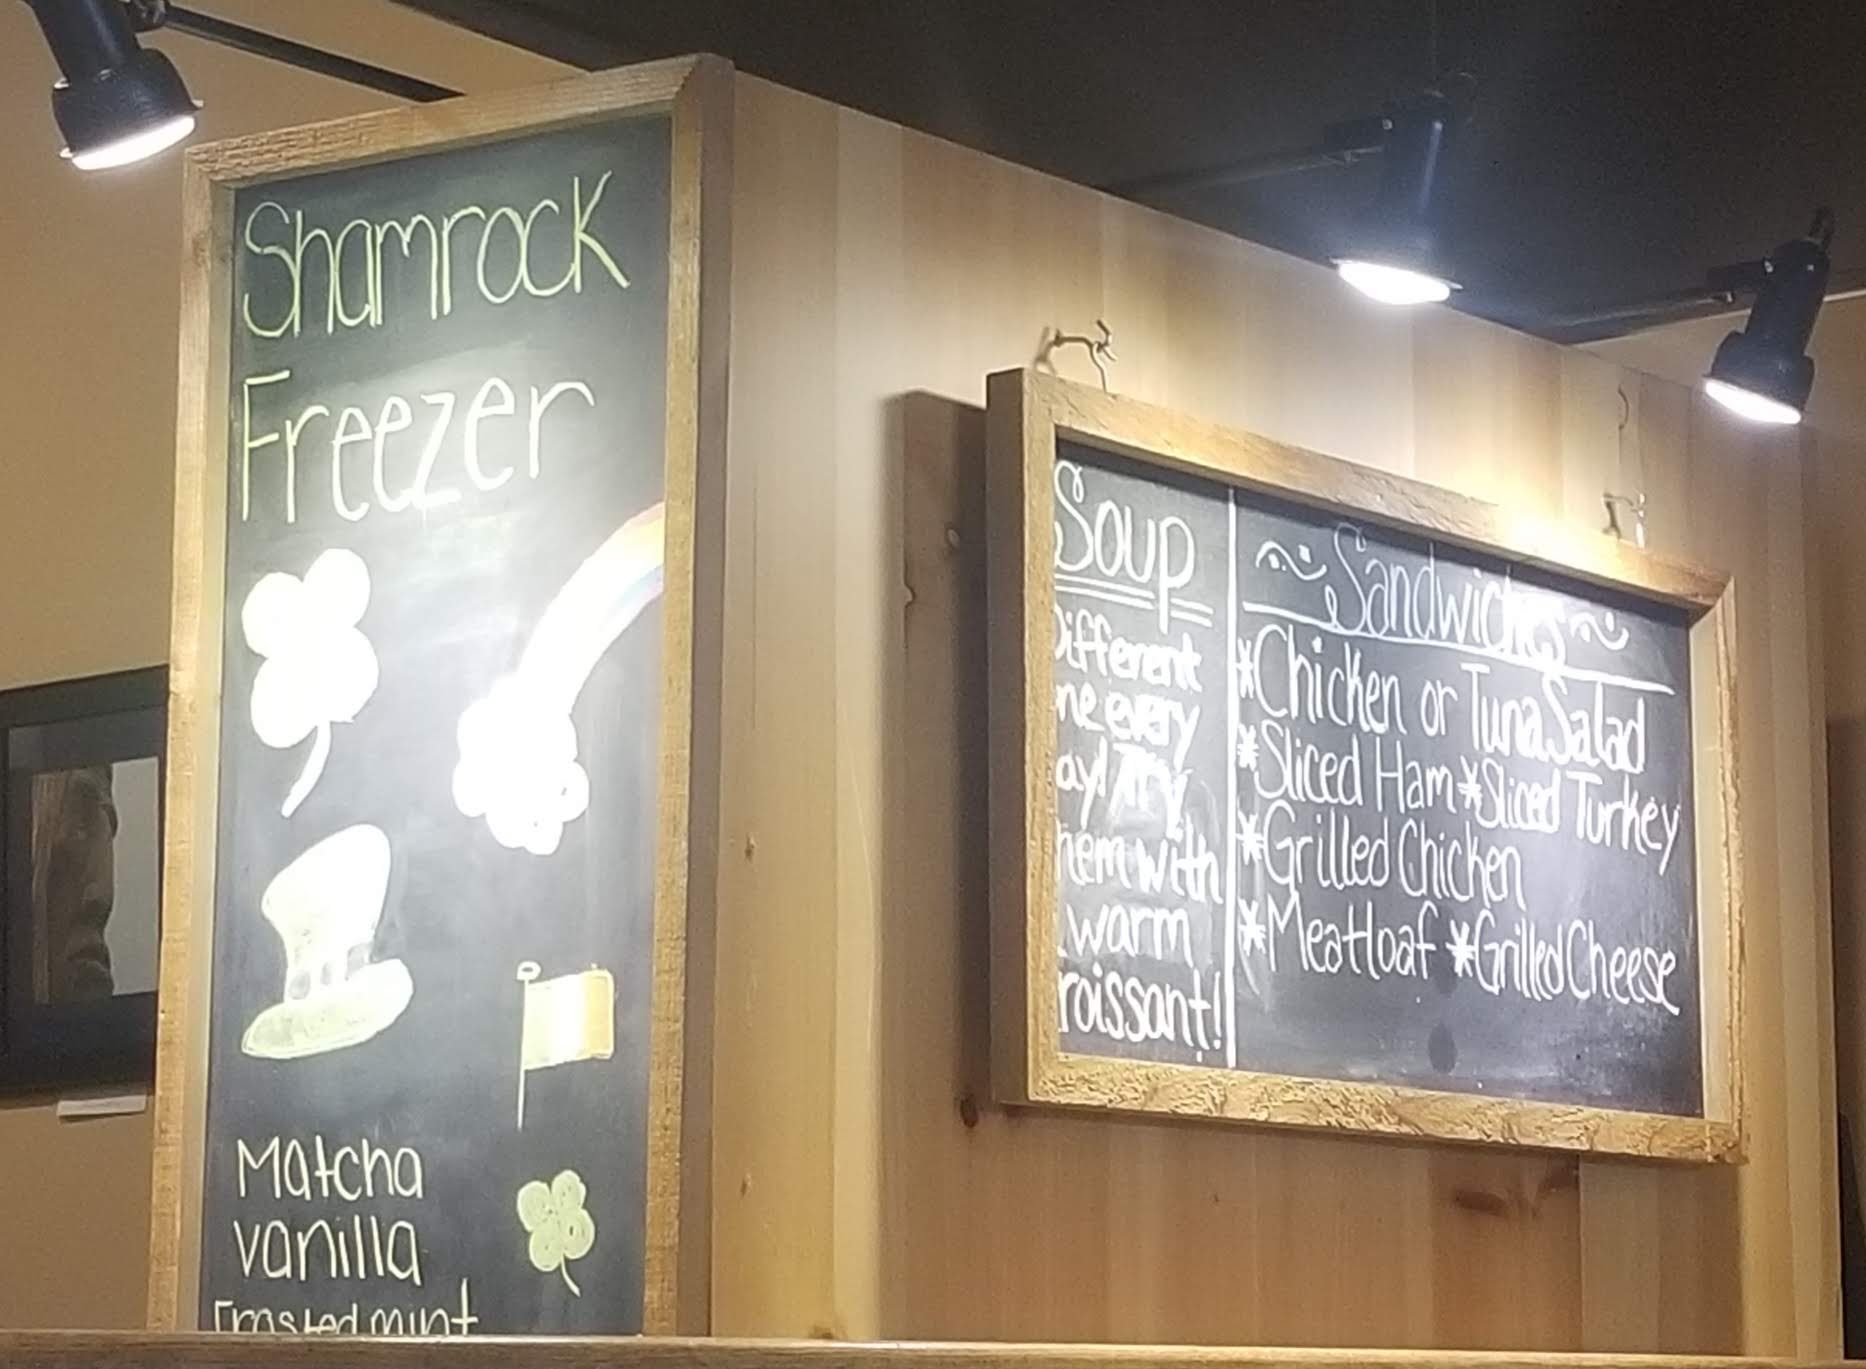 Shamrock
Freezer
Matcha
vanilla
Frosted mint
Soup
Different
ne every
ay! Try
hem with
warm
roissant!
Sandwiches
*Chicken or Tuna Salad
*Sliced Ham *Sliced Turkey
*Grilled Chicken
*Meatloaf *Grilled Cheese